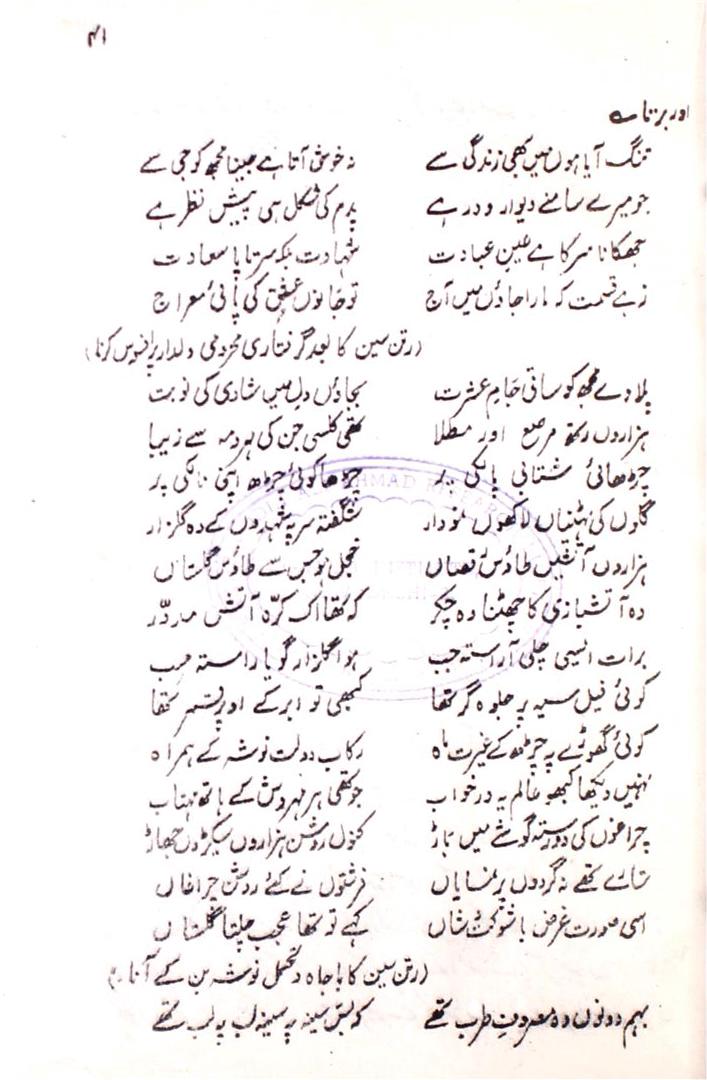 ۴۱
اور برتا ہے
تنگ آیا ہوں میں بھی زندگی سے نہ خوش آتا ہے جینا مجھ کو جی سے
جو میرے سامنے دیوار و در ہے پدم کی شکل ہی پیش نظر ہے
جھکانا سر کا ہے عین عبادت شہادت بلکہ سرتاپا سعادت
زہے قسمت کہ مارا جاؤں میں آج تو جانوں عشق کی پائی معراج
(رتن سین کا بعد گرفتاری محرومی دلدار پر افسوس کرنا)
پلا دے مجھ کو ساقی جام عشرت بجاؤں دل میں شادی کی نوبت
ہزاروں رتھ مرصع اور مطلا تھی کلسی جن کی مہر و مہ سے زیبا
چڑھائی پالکی پر چڑھا کوئی چڑھ اپنی نالکی پر
گلوں کی ٹہنیاں لاکھوں نمودار شگفتہ سر پہ شہدوں کے وہ گلزار
ہزاروں آتشیں طاؤس رقصاں خجل ہو جس سے طاؤس گلستاں
وہ آتشبازی کا چھٹنا وہ چکر کہ تھا اک کرّہ آتش مدوّر
برات ایسی چلی آراستہ جب ہوا گلزار گویا راستہ سب
کوئی فیل سیہ پر جلوہ گر تھا کبھی تو ابر کے اوپر قمر تھا
کوئی گھوڑے پہ چڑھ کے غیرت ماہ رکاب دولت نوشہ کے ہمراہ
نہیں دیکھا کبھو عالم یہ در خواب جو تھی ہر مہروش کے ہاتھ مہتاب
چراغوں کی دو رستہ گوشے میں باڑ کنول روشن ہزاروں سیکڑوں جھاڑ
ستارے تھے نہ گردوں پر نمایاں فرشتوں نے کئے روشن چراغاں
اسی صورت غرض با شوکت و شاں کہے تو تھا عجب چلتا گلستاں
(رتن سین کا با جاہ و تجمل نوشہ بن کے آنا)
بہم دونوں وہ مصروف طرب تھے کہ بس سینہ بہ سینہ لب بہ لب تھے